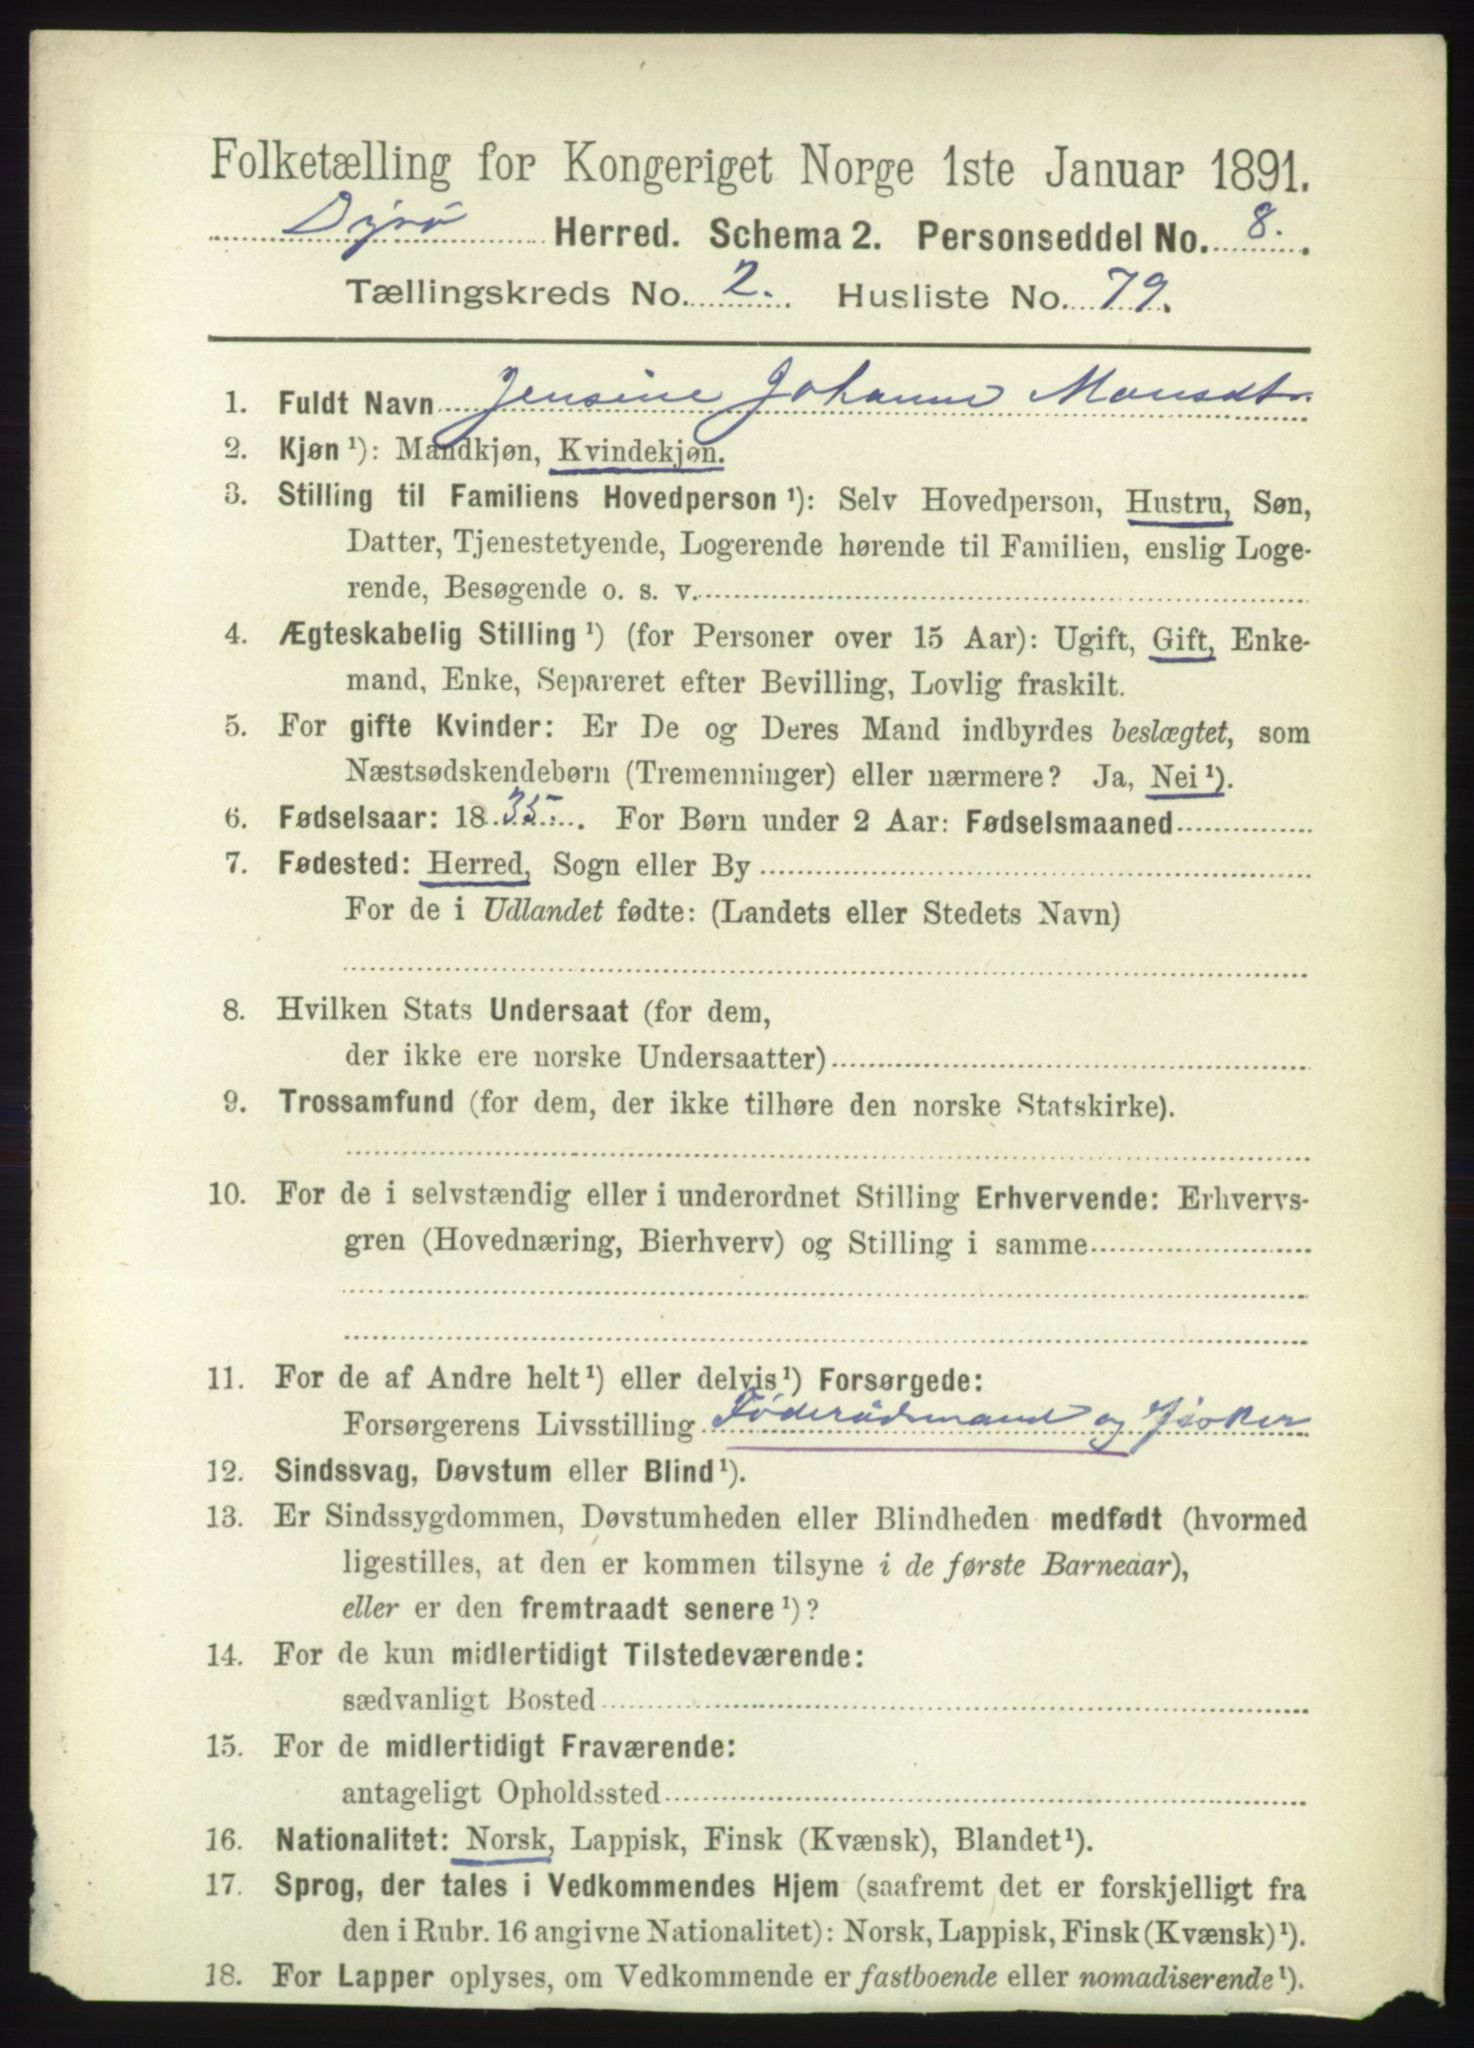 Folketælling for Kongeriget Norge 1ste Januar 1891.
Dyrö Herred. Schema 2. Personseddel No. 8.
Tællingskreds No. 2. Husliste No. 79.
1. Fuldt Navn Jensine Johanne Monsdtr.
2. Kjøn ¹): Mandkjøn, Kvindekjøn.
3. Stilling til Familiens Hovedperson ¹): Selv Hovedperson, Hustru, Søn,
Datter, Tjenestetyende, Logerende hørende til Familien, enslig Loge-
rende, Besøgende o. s. v.
4. Ægteskabelig Stilling ¹) (for Personer over 15 Aar): Ugift, Gift, Enke-
mand, Enke, Separeret efter Bevilling, Lovlig fraskilt.
5. For gifte Kvinder: Er De og Deres Mand indbyrdes beslægtet, som
Næstsødskendebørn (Tremenninger) eller nærmere? Ja, Nei ¹).
6. Fødselsaar: 1835. For Børn under 2 Aar: Fødselsmaaned
7. Fødested: Herred, Sogn eller By
For de i Udlandet fødte: (Landets eller Stedets Navn)
8. Hvilken Stats Undersaat (for dem,
der ikke ere norske Undersaatter)
9. Trossamfund (for dem, der ikke tilhøre den norske Statskirke).
10. For de i selvstændig eller i underordnet Stilling Erhvervende: Erhvervs-
gren (Hovednæring, Bierhverv) og Stilling i samme
11. For de af Andre helt ¹) eller delvis ¹) Forsørgede:
Forsørgerens Livsstilling Föderådsmand og Fisker
12. Sindssvag, Døvstum eller Blind ¹).
13. Er Sindssygdommen, Døvstumheden eller Blindheden medfødt (hvormed
ligestilles, at den er kommen tilsyne i de første Barneaar),
eller er den fremtraadt senere ¹)?
14. For de kun midlertidigt Tilstedeværende:
sædvanligt Bosted
15. For de midlertidigt Fraværende:
antageligt Opholdssted
16. Nationalitet: Norsk, Lappisk, Finsk (Kvænsk), Blandet ¹).
17. Sprog, der tales i Vedkommendes Hjem (saafremt det er forskjelligt fra
den i Rubr. 16 angivne Nationalitet): Norsk, Lappisk, Finsk (Kvænsk) ¹).
18. For Lapper oplyses, om Vedkommende er fastboende eller nomadiserende ¹).